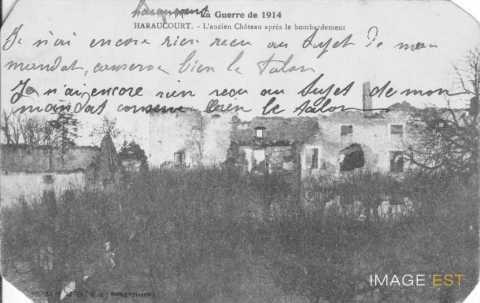 haraucourt
La Guerre de 1914
HARAUCOURT. - L'ancien Château après le bombardement
Je n'ai encore rien recu au Sujet de mon
mandat, conserve bien le talon
Je n'ai encore rien recu au Sujet de mon
mandat conserve bien le talon
IMAGE'EST